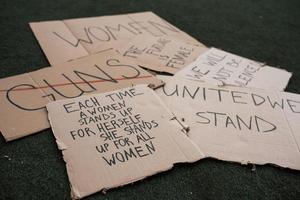 WOMEN
THE FUTURE
IS FEMALE
WE WILL
NOT BE
SILENCED
GUNS
UNITED WE
STAND
EACH TIME
A WOMEN
STANDS UP
FOR HERSELF
SHE STANDS
UP FOR ALL
WOMEN